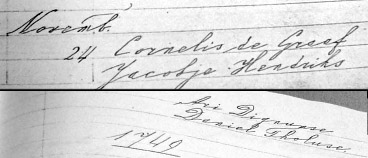 Novemb.
24 Cornelis de Greef
Jacobje Hendriks
Ari Dignusse
Daniel Tholuse.
1749